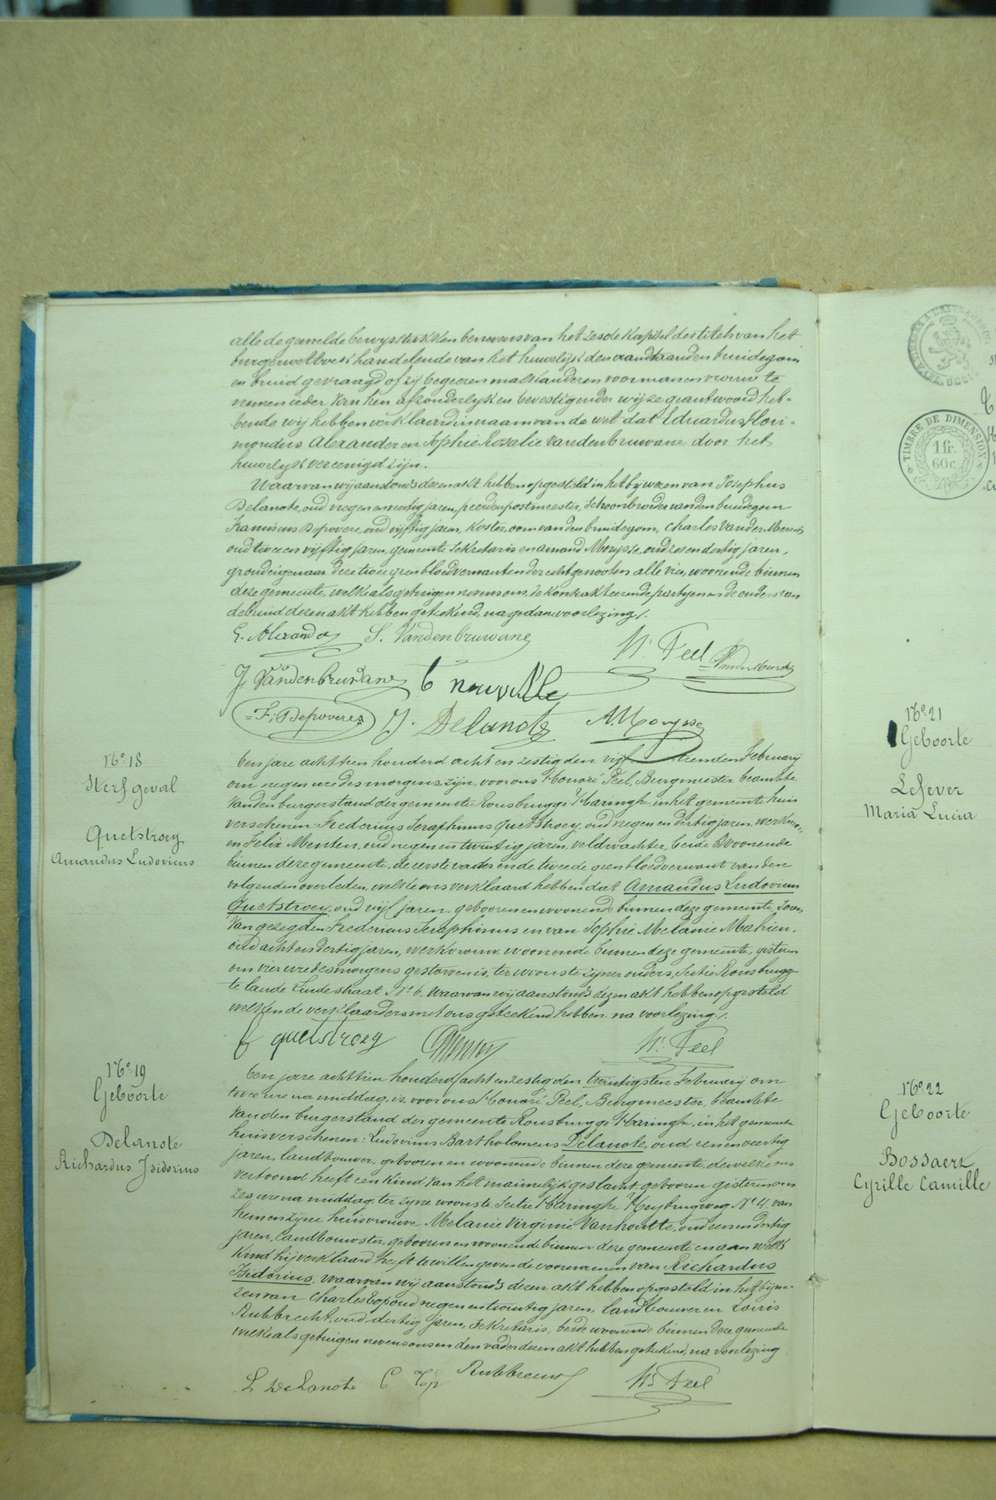 alle de gemelde bewysstukken benevens van het zesde kapittel des titels van het
burgerwetboek handelende van het huwelyk den aanstaanden bruidegom
en bruid gevraagd of zy begeeren malkanderen voor man en vrouw te
nemen ieder van hen afzonderlyk en bevestigender wyze geantwoord heb-
bende wy hebben verklaard in naam van de wet dat Eduardus Flori-
mondus Alexander en Sophie Rosalie Vandenbruwane door het
huwelyk vereenigd zyn.
Waarvan wy aanstonds dezen akt hebben opgesteld in het bywezen van Josephus
Delanote, oud negen en veertig jaren, peerdenpostmeester, schoonbroeder van den bruidegom
Franciscus Depovere, oud vyftig jaren, koster, oom van den bruidegom, Charles Vander Meersch
oud twee en vyftig jaren, gemeente sekretaris en Amand Mouysse, oud zes en dertig jaren,
grondeigenaar deze twee geen bloedverwanten der echtgenooten alle vier woonende binnen
deze gemeente, welke als getuigen nevens ons, de kontrakteerende partyen en de ouders van
de bruid dezen akt hebben geteekend, na gedane voorlezing /.
E. Alexander S. Vandenbruwane H. Peel
J. Vandenbruwane
F. Depovere J. Delanote A. Mouysse
N.º 18
Sterfgeval
Quetstroey
Amandus Ludovicus
Een jare achttien honderd acht en zestig den vyftienden February
om negen ure des morgens zyn voor ons Honoré Peel, Burgmeester beambte
van den burgerstand der gemeente Rousbrugge Haringhe in het gemeente huis
verschenen Fredericus Seraphinus Quetstroey, oud negen en dertig jaren, werkman
en Felix Menten, oud negen en twintig jaren, veldwachter, beide woonende
binnen deze gemeente, de eerste vader en de tweede geen bloedverwant van den
volgenden overleden, welke ons verklaard hebben dat Amandus Ludovicus
Quetstroey, oud vyf jaren, geboren en woonende binnen deze gemeente, zoon
van gezegden Fredericus Seraphinus en van Sophie Melanie Mahieu,
oud acht en dertig jaren, werkvrouw, woonende binnen deze gemeente, gisteren
om vier ure des morgens gestorven is, ter woonste zyner ouders, Sectie Rousbrugge
te lande Lindestraat N.º 6. Waarvan wy aanstonds dezen akt hebben opgesteld
welken de verklaarders met ons geteekend hebben na voorlezing /.
f quetstroey H. Peel
N.º 19
Geboorte
Delanote
Richardus Isidorius
Een jare achttien honderd acht en zestig den twintigsten February om
twee ure na middag, is voor ons Honoré Peel, Burgmeester, beambte
van den burgerstand der gemeente Rousbrugge Haringhe, in het gemeente
huis verschenen: Ludovicus Bartholomeus Delanote, oud zes en veertig
jaren, landbouwer, geboren en woonende binnen deze gemeente, dewelke ons
vertoond heeft een kind van het mannelyk geslacht, geboren gisteren om
zes ure na middag, ter zyne woonste Sectie Haringhe N.º 4, van
hem en zyne huisvrouwe Melanie Virginie Vanhoutte, oud een en dertig
jaren, landbouwster, geboren en woonende binnen deze gemeente en aan welk
kind hy verklaard heeft te willen geven de voornamen van Richardus
Isidorius, waarvan wy aanstonds dezen akt hebben opgesteld in het bywe-
zen van Charles Top oud negen en twintig jaren, landbouwer en Louis
Rubbrecht, oud dertig jaren, sekretaris, beide woonende binnen deze gemeente
welke als getuigen nevens ons en den vader dezen akt hebben geteekend, na voorlezing
L. Delanote C Top H. Peel
TIMBRE DE DIMENSION
1 fr.
60 c.
N.º 21
Geboorte
Lefever
Maria Lucia
N.º 22
Geboorte
Bossaert
Cyrille Camille